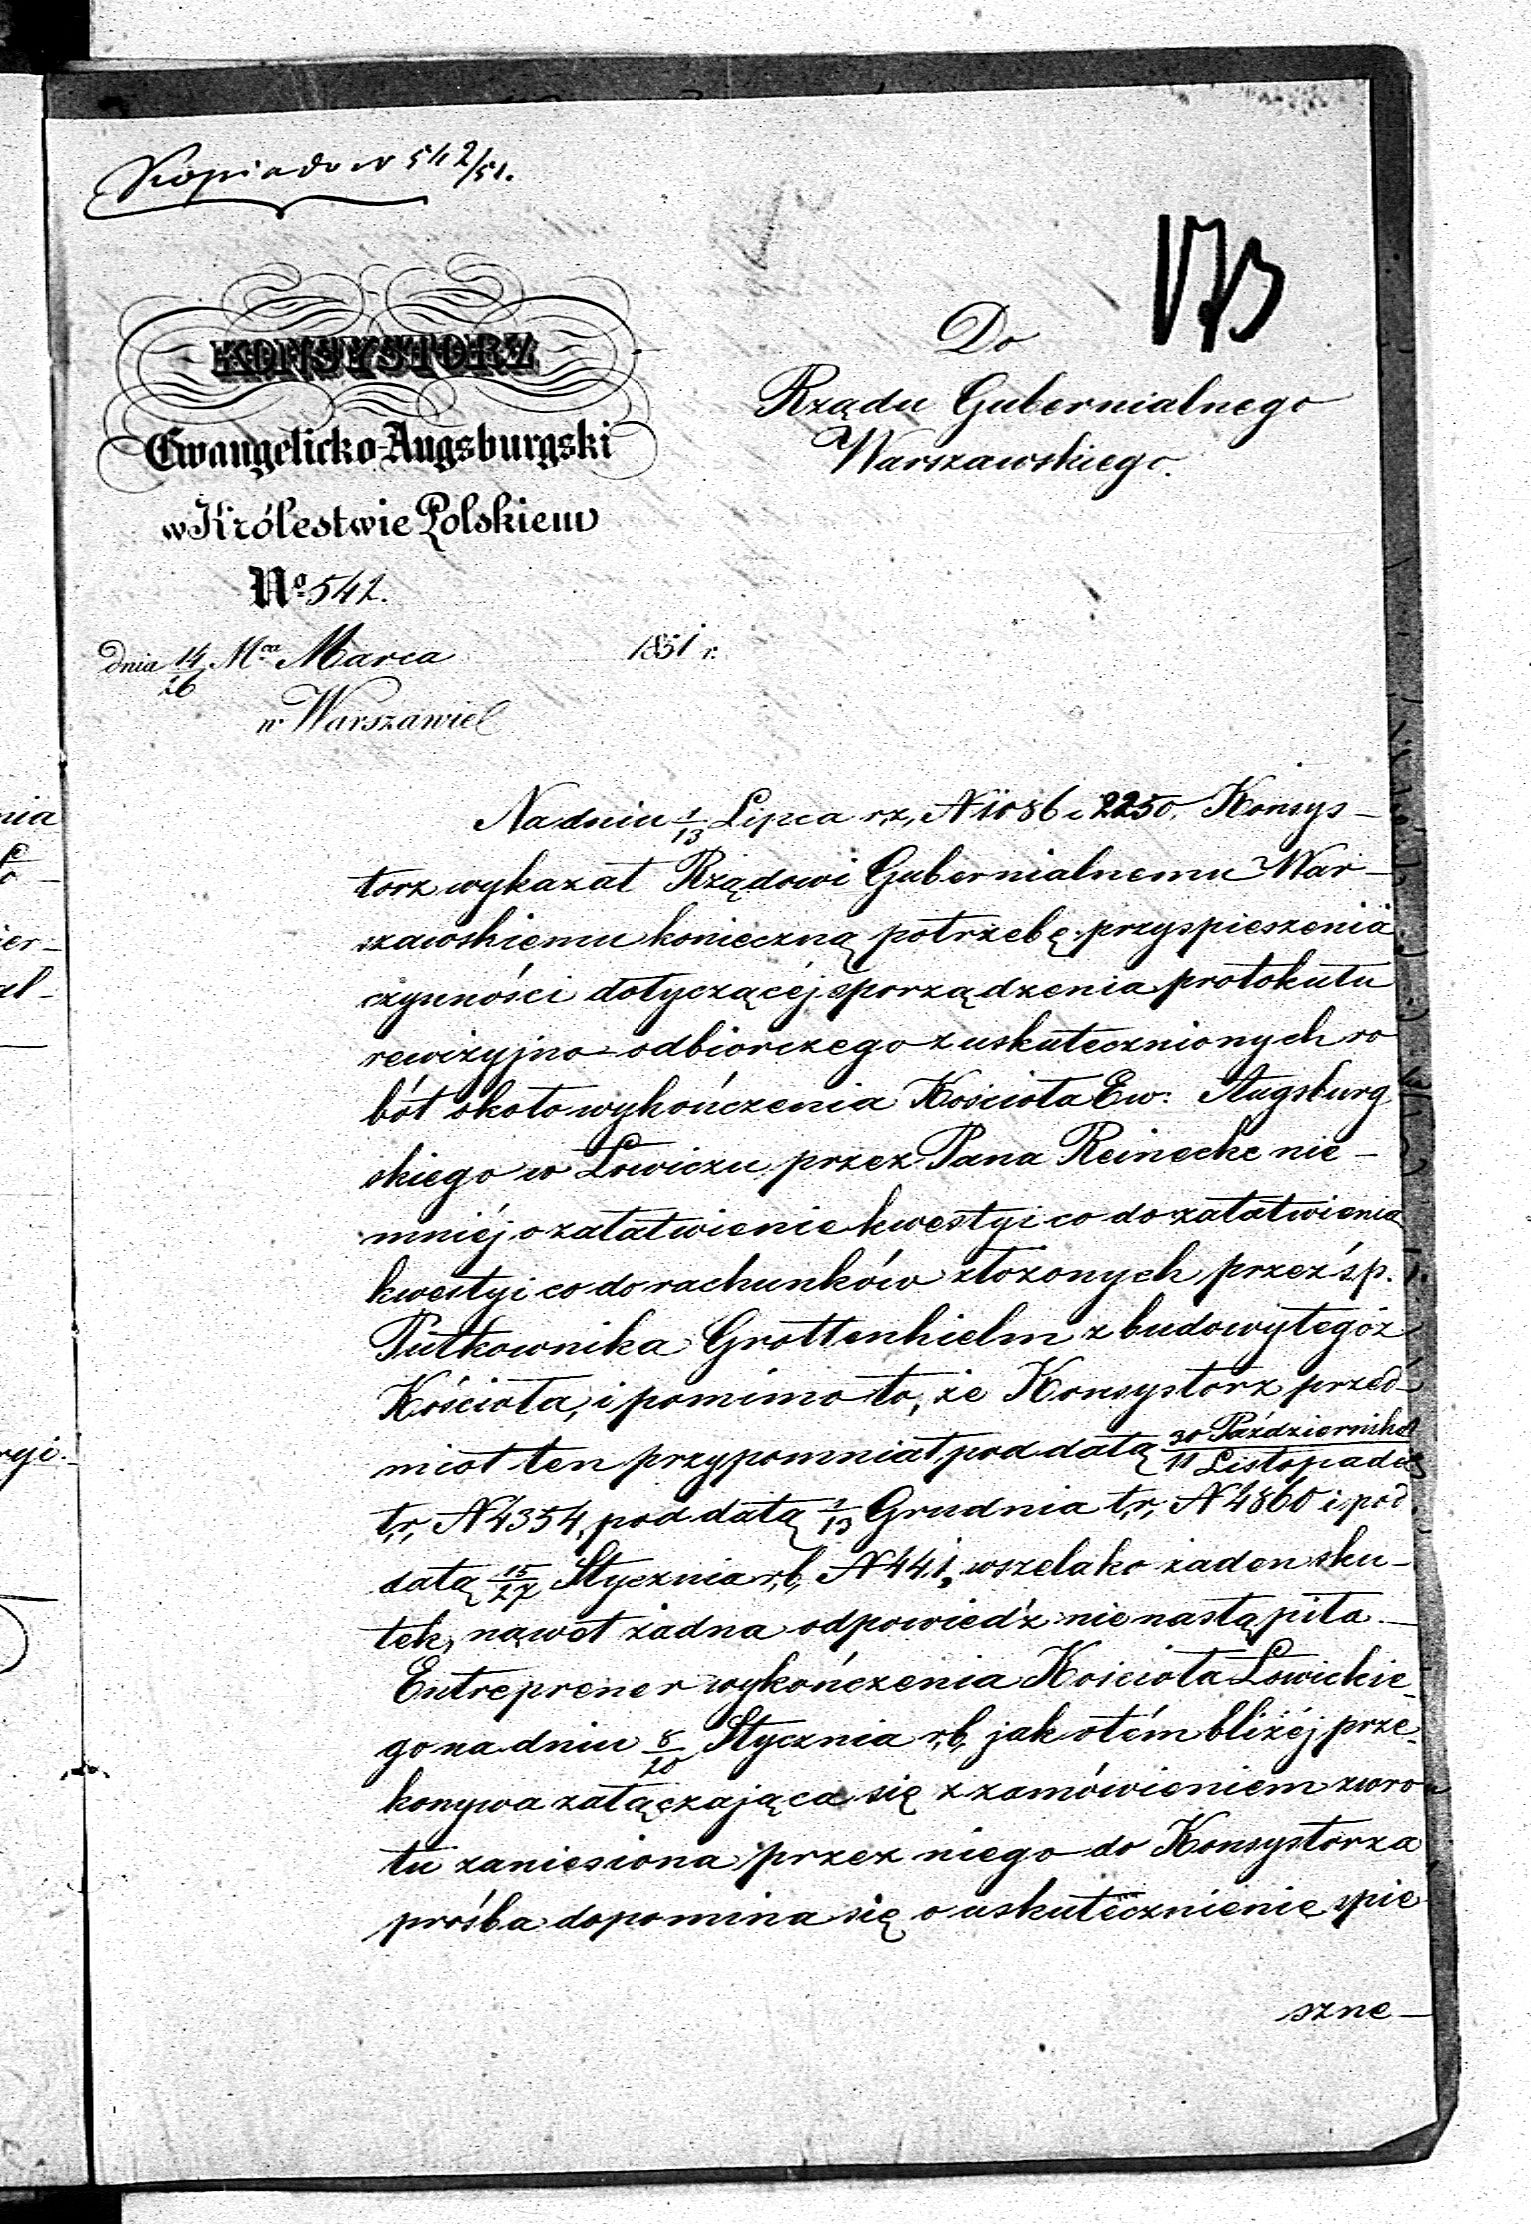 Kopia do N 542/51.
173
KONSYSTORZ
Ewangelicko-Augsburgski
w Królestwie Polskiem
No 542.
dnia 14/26 Mca Marca 1851 r.
w Warszawie
Do
Rządu Gubernialnego
Warszawskiego.
Na dniu 1/13 Lipca r.z. N 1086 i 2250. Konsys-
torz wykazał Rządowi Gubernialnemu War-
szawskiemu konieczną potrzebę przyspieszenia
czynności dotyczącéj sporządzenia protokułu
rewizyjno-odbiorczego z uskutecznionych ro
bót około wykończenia Kościoła Ew: Augsburg
skiego w Łowiczu przez Pana Reinecke nie-
mniéj o załatwienie kwestyi co do załatwienia
kwestyi co do rachunków złożonych przez ś.p.
Pułkownika Grottenhielm z budowy tegóż
Kościoła, i pomimo to, że Konsystorz przed-
miot ten przypomniał pod datą 30 Października/11 Listopada
t.r. N 4354, pod datą 1/13 Grudnia t.r. N 4860 i pod
datą 15/27 Stycznia r.b. N 441, wszelako żaden sku-
tek, nawet żadna odpowiedź nie nastąpiła.-
Entreprener wykończenia Kościoła Łowickie-
go na dniu 8/20 Stycznia r.b. jak o tém bliżéj prze-
konywa załączająca się z zamówieniem zwro-
tu zaniesiona przez niego do Konsystorza
prośba dopomina się o uskutecznienie spie
szne-
nia
ier-
al-
ryi.